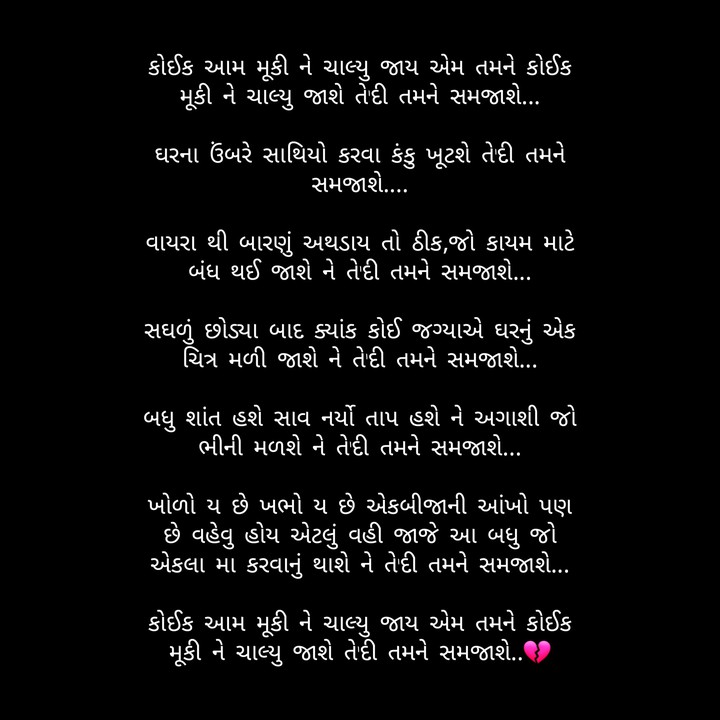 કોઈક આમ મૂકી ને ચાલ્યુ જાય એમ તમને કોઈક
મૂકી ને ચાલ્યુ જાશે તે'દી તમને સમજાશે...
ઘરના ઉંબરે સાથિયો કરવા કંકુ ખૂટશે તે'દી તમને
સમજાશે....
વાયરા થી બારણું અથડાય તો ઠીક,જો કાયમ માટે
બંધ થઈ જાશે ને તે'દી તમને સમજાશે...
સઘળું છોડ્યા બાદ ક્યાંક કોઈ જગ્યાએ ઘરનું એક
ચિત્ર મળી જાશે ને તે'દી તમને સમજાશે...
બધુ શાંત હશે સાવ નર્યો તાપ હશે ને અગાશી જો
ભીની મળશે ને તે'દી તમને સમજાશે...
ખોળો ય છે ખભો ય છે એકબીજાની આંખો પણ
છે વહેવુ હોય એટલું વહી જાજે આ બધુ જો
એકલા મા કરવાનું થાશે ને તે'દી તમને સમજાશે...
કોઈક આમ મૂકી ને ચાલ્યુ જાય એમ તમને કોઈક
મૂકી ને ચાલ્યુ જાશે તે'દી તમને સમજાશે..💔